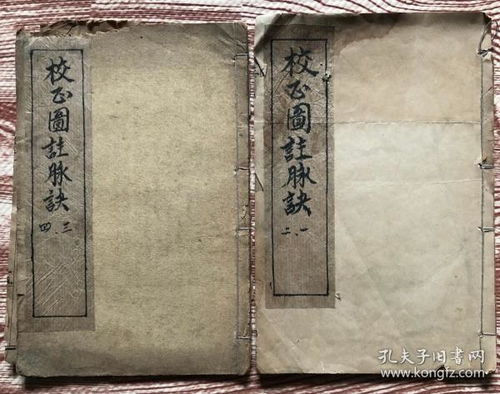 校正圖註脉訣
三、四
校正圖註脉訣
一、二
孔夫子旧书网
www.kongfz.com